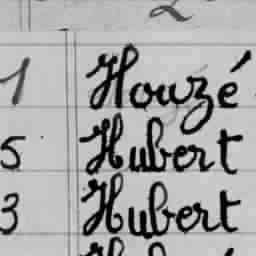 2
1 Houzé
5 Hubert
3 Hubert